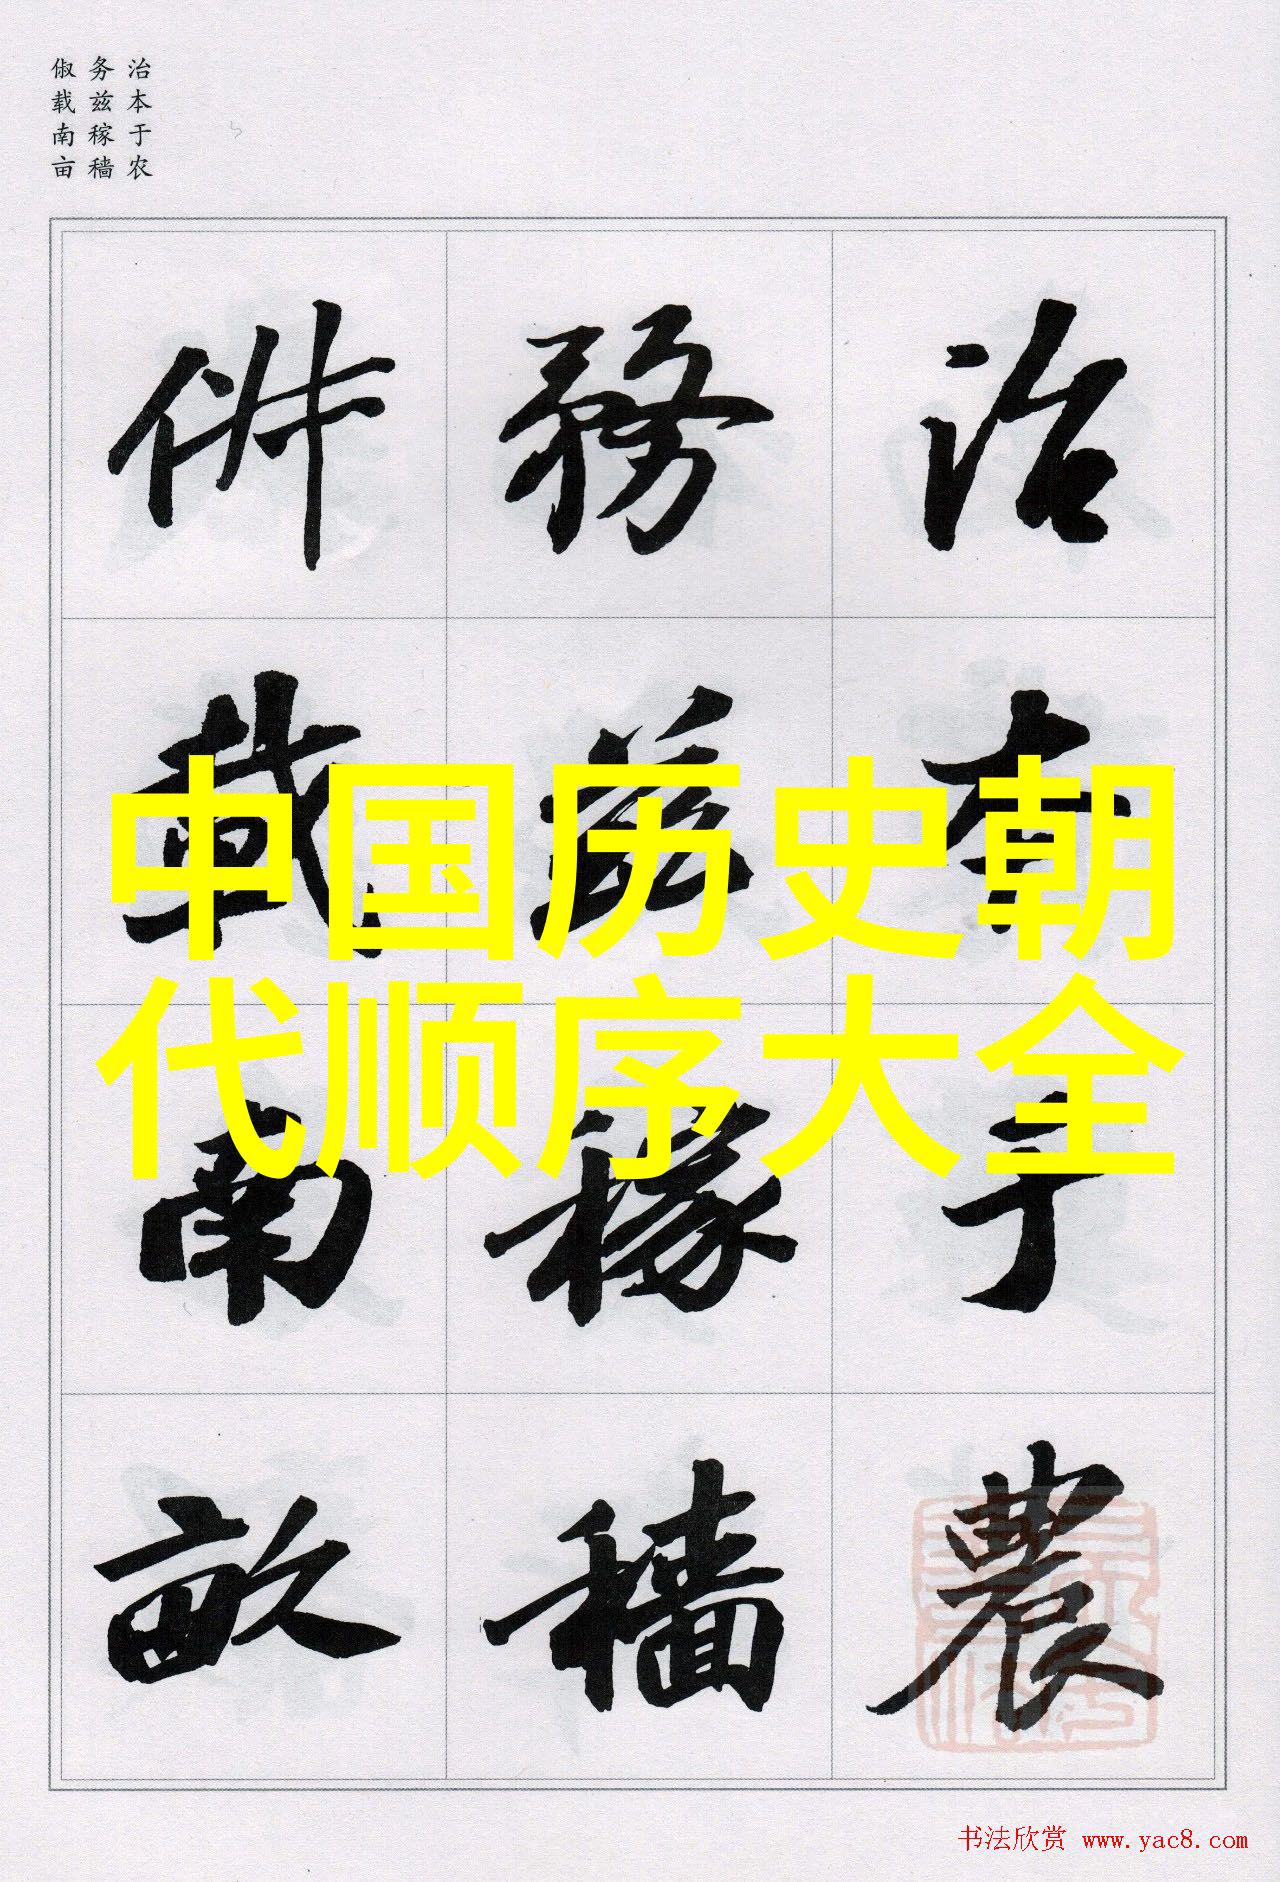 治本于农
务兹稼穑
俶载南亩
治本于農
務兹稼穡
俶載南畝
中国历史朝
代顺序大全
书法欣赏 www.yac8.com